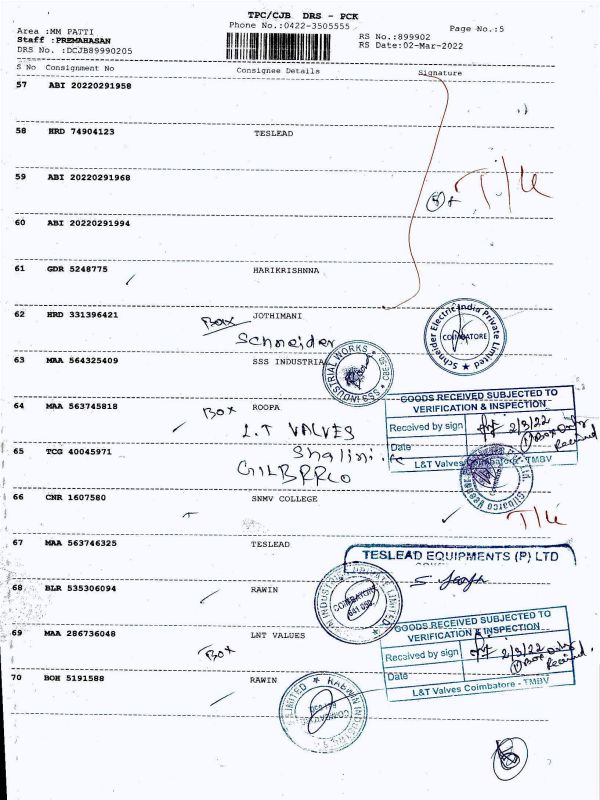 TPC/CJB DRS - PCK
Phone No.:0422-3505555
Area :MM PATTI
Staff :PREMAHASAN
DRS No. :DCJB89990205
RS No.:899902
RS Date:02-Mar-2022
Page No.:5
S No Consignment No Consignee Details Signature
57 ABI 20220291958
58 HRD 74904123 TESLEAD
59 ABI 20220291968
60 ABI 20220291994
61 GDR 5248775 HARIKRISHNNA
62 HRD 331396421 JOTHIMANI
Box
Schneider
Schneider Electric India Private Limited
COIMBATORE
63 MAA 564325409 SSS INDUSTRIA
SSS INDUSTRIAL WORKS
GOODS RECEIVED SUBJECTED TO
VERIFICATION & INSPECTION
64 MAA 563745818 ROOPA
Box
Received by sign
2/3/22
Box only
Received
Date
L&T Valves Coimbatore - TMBV
L.T VALVES
65 TCG 40045971
Shalini
GILBRRCO
66 CNR 1607580 SNMV COLLEGE
67 MAA 563746325 TESLEAD
TESLEAD EQUIPMENTS (P) LTD
68 BLR 535306094 RAWIN
COIMBATORE
641 050
GOODS RECEIVED SUBJECTED TO
VERIFICATION & INSPECTION
69 MAA 286736048 LNT VALUES
Box
Received by sign
2/3/22
Box only
Received.
Date
L&T Valves Coimbatore - TMBV
70 BOH 5191588 RAWIN